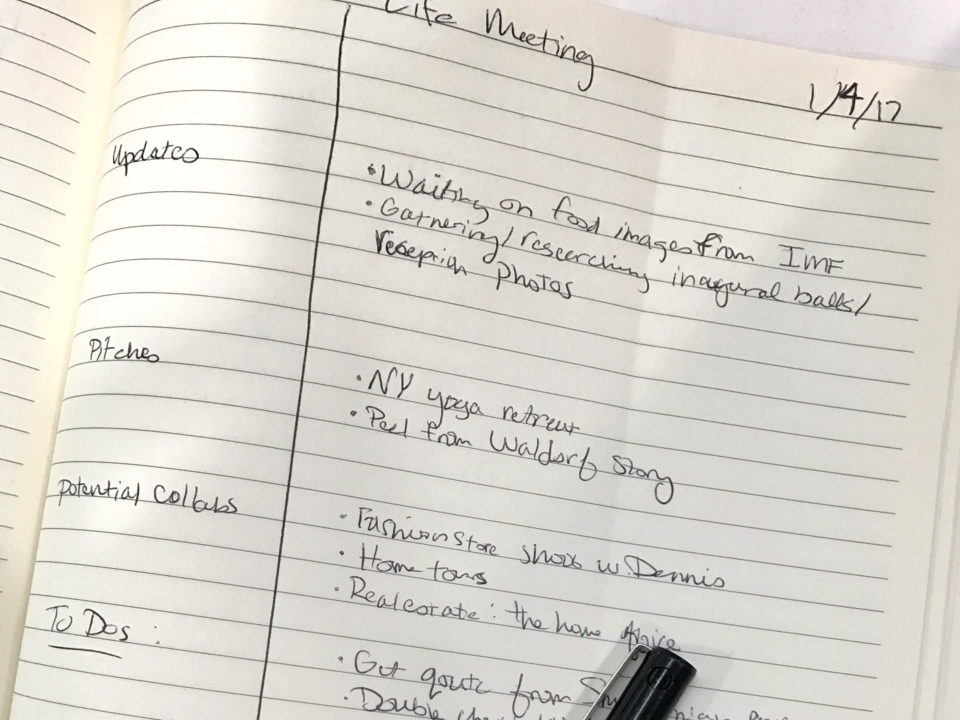 Life Meeting
1/4/17
Updates
• Waiting on food images from IMF
• Gathering/researching inagural balls/
reseprion photos
Pitches
• NY yoga retreat
• Peel from Waldorf story
Potential Collabs
• Fashion store shoot w. Dennis
• Home tours
• Real estate: the home
To Dos :
• Get qoute from
• Double